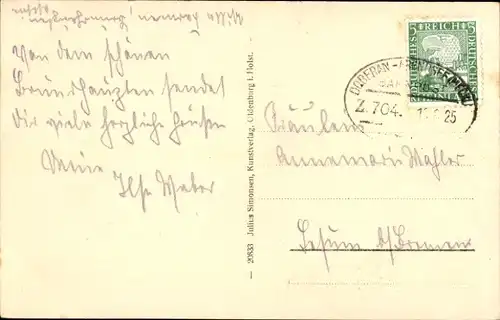 Von dem schönen
Brunshaupten sendet
dir viele herzliche Grüsse
Deine
Ilse Weber
20833 Julius Simonsen, Kunstverlag, Oldenburg i. Holst.
DEUTSCHES REICH
5 5
Z. 704. 25
Fräulein
Annemarie Mahler
Lesum b/Bremen